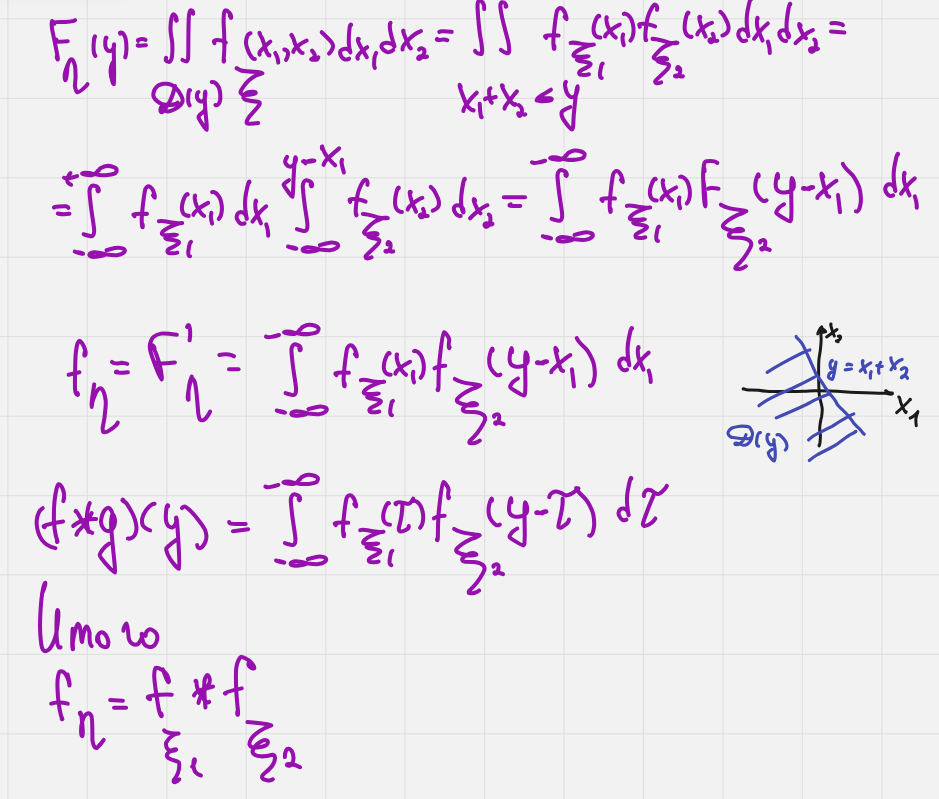 F_η(y) = ∬_{D(y)} f_ξ(x₁,x₂)dx₁dx₂ = ∬_{x₁+x₂<y} f_ξ₁(x₁)f_ξ₂(x₂)dx₁dx₂ =
= ∫_{-∞}^{+∞} f_ξ₁(x₁)dx₁ ∫_{-∞}^{y-x₁} f_ξ₂(x₂)dx₂ = ∫_{-∞}^{-∞} f_ξ₁(x₁)F_ξ₂(y-x₁)dx₁
f_η = F'_η = ∫_{-∞}^{-∞} f_ξ₁(x₁)f_ξ₂(y-x₁)dx₁
x₂
y = x₁+x₂
x₁
D(y)
(f*g)(y) = ∫_{-∞}^{-∞} f_ξ₁(τ)f_ξ₂(y-τ)dτ
Итого
f_η = f_ξ₁ * f_ξ₂